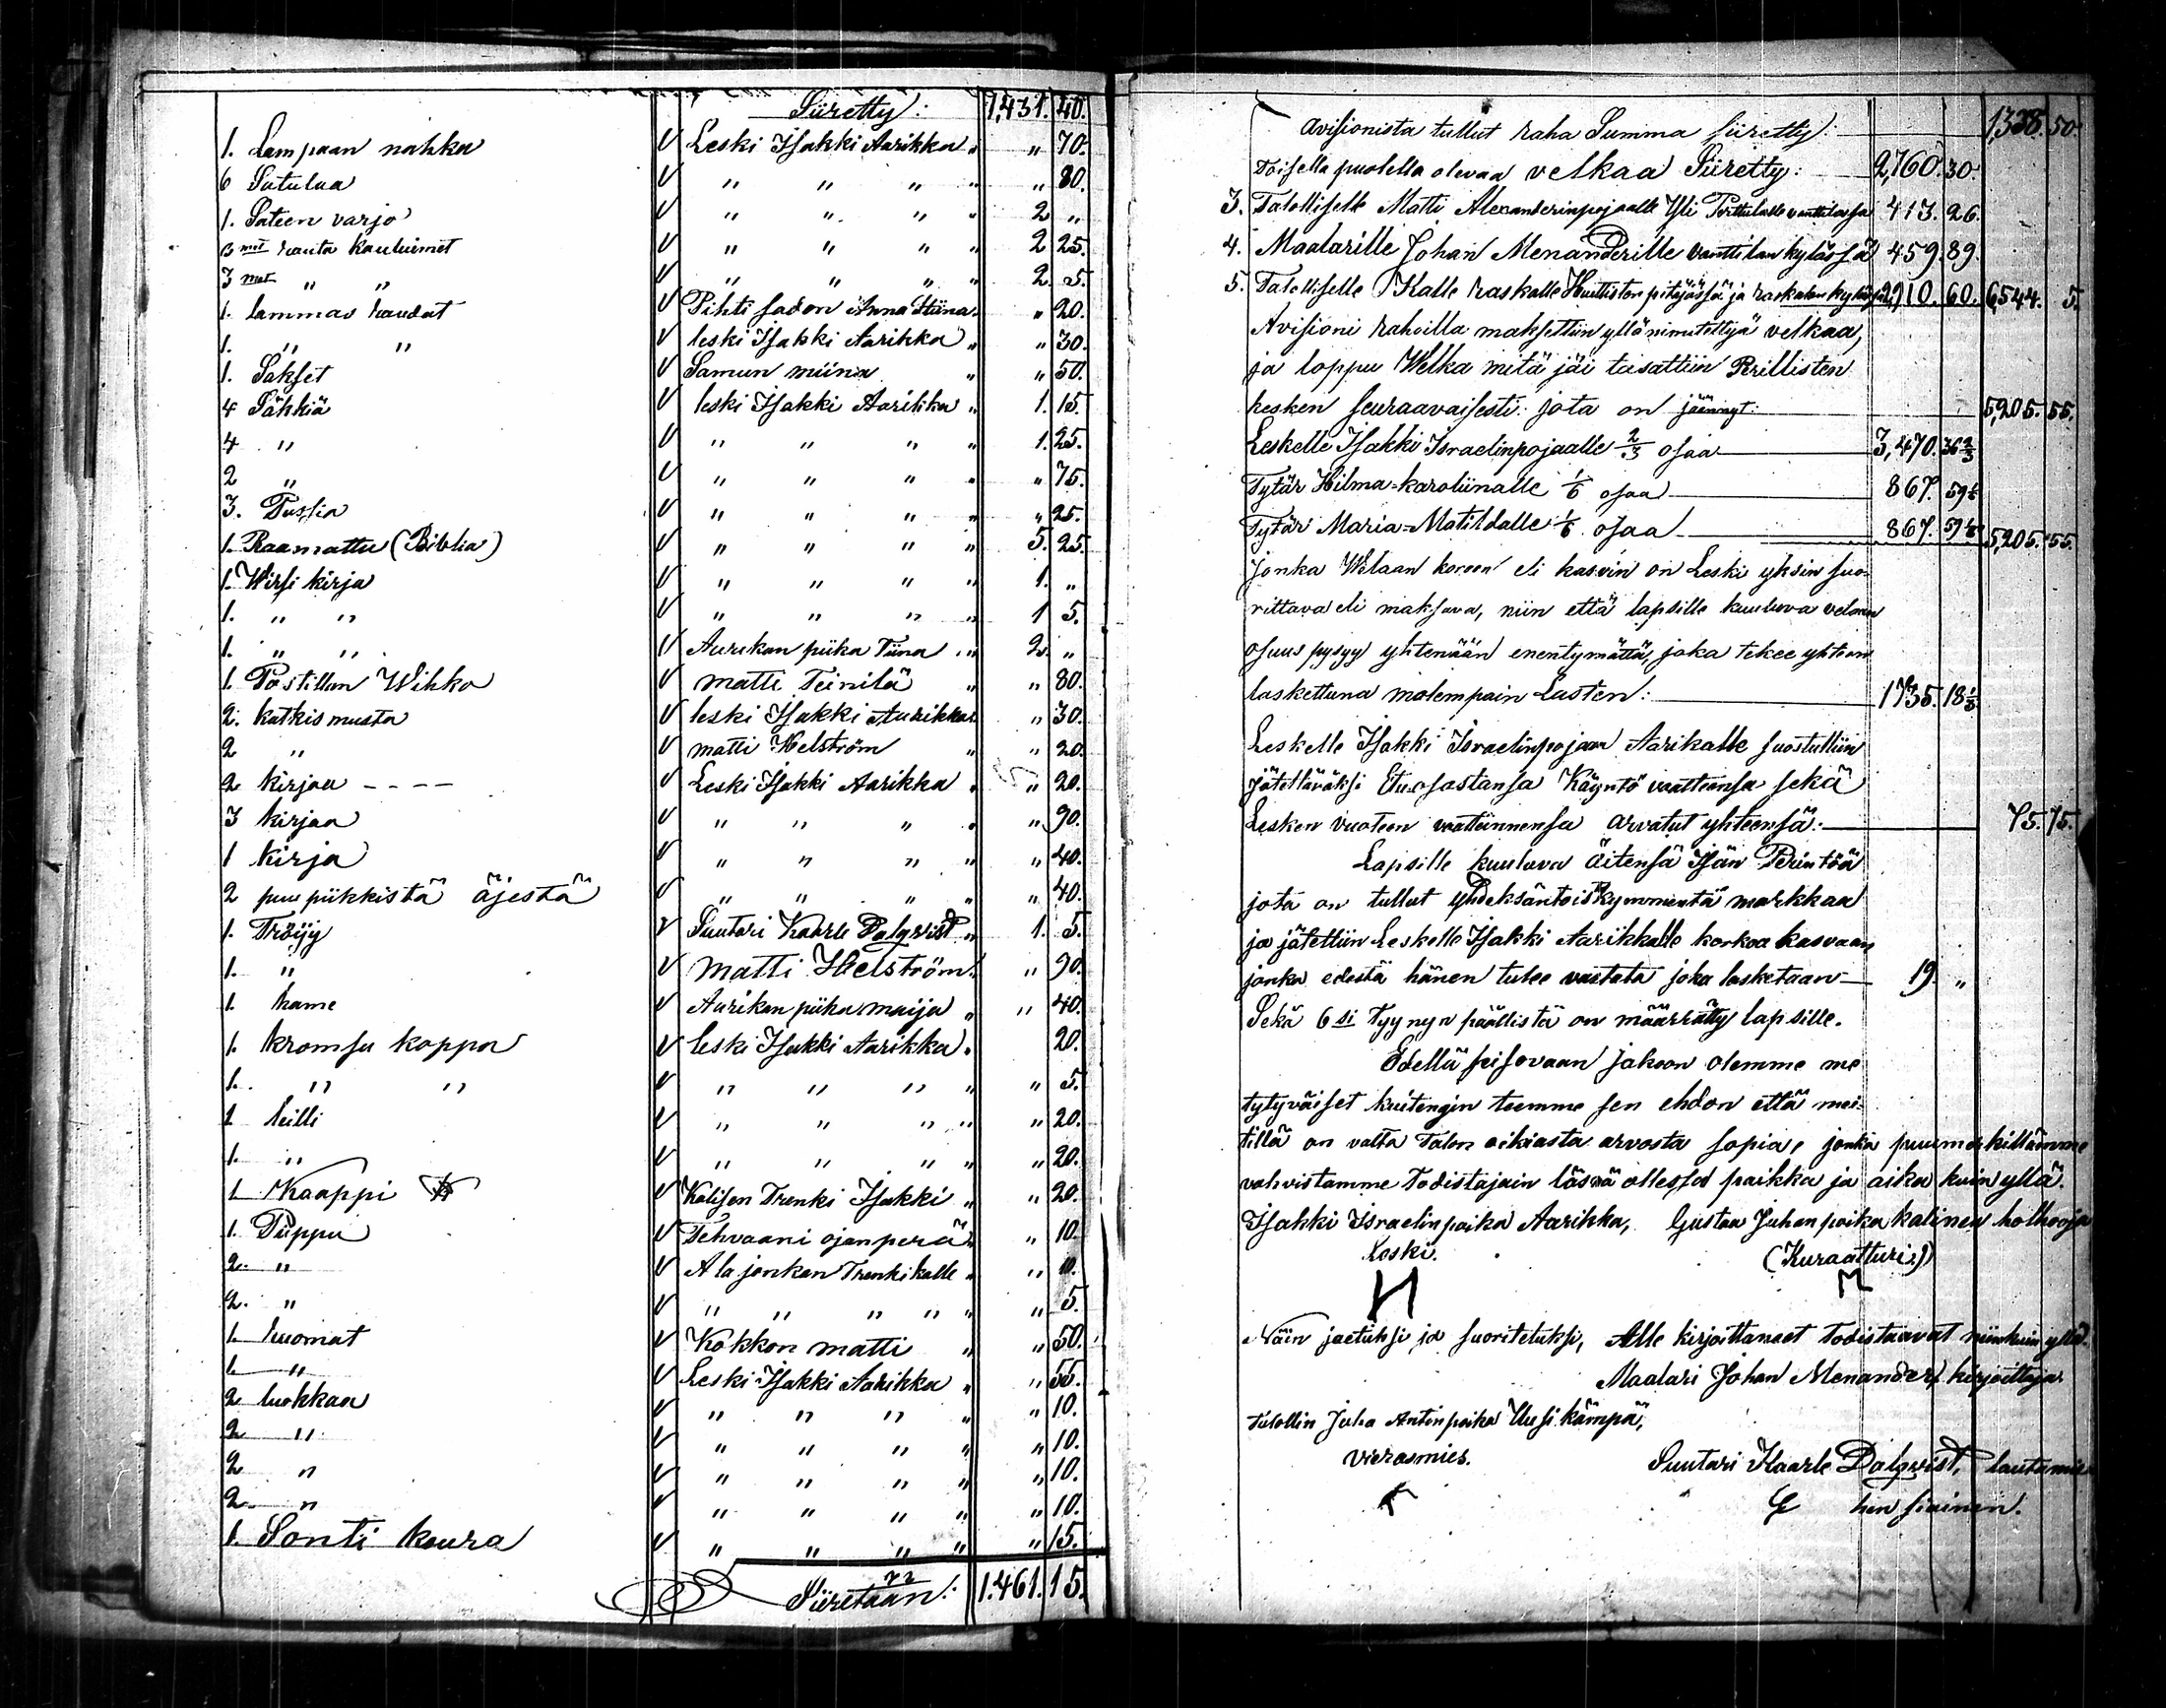 Siiretty: 1,431. 40.
1. Lampaan nahka V Leski Isakki Aarikka „ „ 70.
6 Satulaa V „ „ „ „ „ 80.
1. Sateen varjo V „ „ „ „ 2 „
3 met rauta kauluimet V „ „ „ „ 2 25.
3 met „ „ V „ „ „ „ 2. 5.
1. lammas raudat V Pihti sadon Anna Stiina „ „ 20.
1. „ „ V leski Isakki Aarikka „ „ 30.
1. Sakset V Samun miina „ „ 50.
4 Säkkiä V leski Isakki Aarikka „ 1. 15.
4 „ V „ „ „ „ 1. 25.
2 „ V „ „ „ „ „ 75.
3. Pussia V „ „ „ „ „ 25.
1. Raamattu (Biblia) V „ „ „ „ 5. 25.
1. Wirsi kirja V „ „ „ „ 1. „
1. „ „ V „ „ „ „ 1 5.
1. „ „ V Aurikan piika Tiina „ 2. „
1. Postillan Wihko V matti Teinilä „ „ 80.
2. katkismusta V leski Isakki Aarikka „ „ 30.
2 „ V matti Helström „ „ 20.
2 kirjaa - - - - V Leski Isakki Aarikka „ „ 20.
3 kirjaa V „ „ „ „ „ 90.
1 kirja V „ „ „ „ „ 40.
2 puupiikkistä äjestä V „ „ „ „ „ 40.
1. Tröijy V Suutari Kaarle Dalqvist „ 1. 5.
1. „ V matti Helström „ „ 90.
1. hame V Aarikan piika maija „ „ 40.
1. kromsu koppa V leski Isakki Aarikka „ 20.
1. „ „ V „ „ „ „ „ 5.
1 leilli V „ „ „ „ „ 20.
1. „ V „ „ „ „ „ 20.
1 Kaappi V Kalisen Trenki Isakki „ „ 20.
1. Piippu V Tehvaani ojanperä „ „ 10.
2. „ V Alajonkan Trenki kalle „ „ 10.
2. „ V „ „ „ „ „ 5.
1. luomat V Kokkon matti „ „ 50.
1. „ V Leski Isakki Aarikka „ „ 55.
2 luokkaa V „ „ „ „ „ 10.
2 „ V „ „ „ „ „ 10.
2 „ V „ „ „ „ „ 10.
2 „ V „ „ „ „ „ 10.
1. Sonti koura V „ „ „ „ „ 15.
Siiretään: 1.461. 15.
Avisionista tullut raha Summa siiretty: 1,338. 50.
Toisella puolella olevaa velkaa Siiretty: 2,760. 30.
3. Talolliselle Matti Alexanderinpojaalle Yli Perttulalle vanttilassa 413. 26.
4. Maalarille Johan Menanderille vanttilan kylässä 459. 89.
5. Talolliselle Kalle raskalle Huittisten pitäjässä ja raskalan kylässä 2910. 60. 6544. 5.
Avisioni rahoilla maksettiin yllä nimitettyjä velkaa,
ja loppu Welka mitä jäi tasattiin Perillisten
kesken seuraavaisesti: jota on jäännyt: 5,205. 55.
Leskelle Isakki Israelinpojaalle 2/3 osaa 3,470. 36 2/3
Tytär Hilma-karoliinalle 1/6 osaa 867. 59 1/6
Tytär Maria-Matildalle 1/6 osaa 867. 59 1/6 5,205. 55.
Jonka Welaan koron eli kasvin on Leski yksin suo-
rittava eli maksava, niin että lapsille kuuluva velan
osuus pysyy yhtenään enentymättä, joka tekee yhteen
laskettuna molempain Lasten: 1735. 18 1/3
Leskelle Isakki Israelinpojaan Aarikalle suostuttiin
jätettäväksi Etuosastansa Käyntö vaatteensa sekä
Lesken vuoteen vaattiinnensa arvatut yhteensä: 75. 75.
Lapsille kuuluva äitensä Isän Perintöä
jota on tullut yhdeksäntoistkymmentä markkaa
ja jätettiin Leskelle Isakki Aarikkalle korkoa kasvaan
jonka edestä hänen tulee vastata joka lasketaan 19. „
Sekä 6 si Tyynyn päällistä on määrätty lapsille.
Edellä seisovaan jakoon olemme me
tytyväiset kuitengin teemme sen ehdon että mei-
tillä on valta Talon oikiasta arvosta sopia, jonka puumerkillämme
vahvistamme Todistajain läsnä ollessa paikka ja aika kuin yllä.
Isakki Israelinpoika Aarikka, Gustaa Juhanpoika kalinen holhooja
Leski. (Kuraatturi.)
Näin jaetuksi ja suoritetuksi, Alle kirjoittaneet Todistaavat niinkuin yllä.
Maalari Johan Menander, kirjoittaja
Talollin Juha Antinpoika Uusi kämpä,
vierasmies. Suutari Kaarle Dalqvist, lautamie
hen siainen.